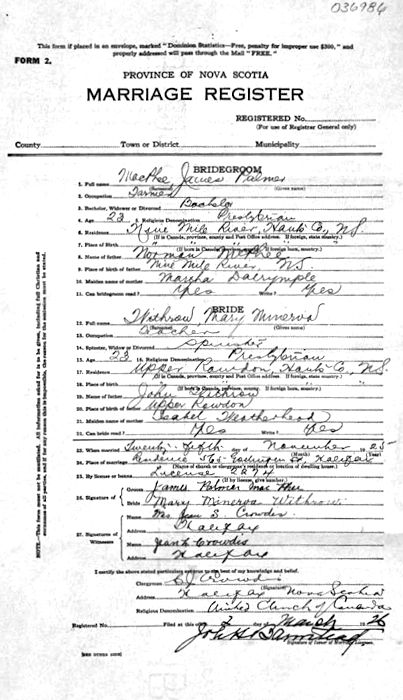 036984
This form if placed in an envelope, marked "Dominion Statistics—Free, penalty for improper use $300," and
properly addressed will pass through the Mail "FREE."
FORM 2.
PROVINCE OF NOVA SCOTIA
MARRIAGE REGISTER
REGISTERED No.
(For use of Registrar General only)
County Town or District Municipality
BRIDEGROOM
1. Full name MacPhee James Palmer
(Surname) (Given name)
2. Occupation Farmer
3. Bachelor, Widower or Divorced Bachelor
4. Age 23 5. Religious Denomination Presbyterian
6. Residence Nine Mile River, Hants Co., N.S.
(If in Canada, province, county and Post Office address. If foreign, state country.)
7. Place of Birth
(If born in Canada, If foreign born, country)
8. Name of father Norman McPhee
9. Place of birth of father Nine Mile River, N.S.
10. Maiden name of mother Martha Dalrymple
11. Can bridegroom read? Yes Write? Yes
BRIDE
12. Full name Withrow Mary Minerva
(Surname) (Given name)
13. Occupation Teacher
14. Spinster, Widow or Divorced Spinster
15. Age 23 16. Religious Denomination Presbyterian
17. Residence Upper Rawdon, Hants Co., N.S.
(If in Canada, province, county and Post Office address. If foreign, state country.)
18. Place of birth
(If born in Canada, If foreign born, country)
19. Name of father John Withrow
20. Place of birth of father Upper Rawdon
21. Maiden name of mother Isabel
22. Can bride read? Yes Write? Yes
23. When married Twenty-fifth day of November 1925
(Month) (Year)
24. Place of marriage Residence 565 St. Halifax
(Name of church or clergyman's residence or location of dwelling house.)
25. By license or banns License 2274
(If by license, give number.)
26. Signature of
Groom James Palmer MacPhee
Bride Mary Minerva Withrow
27. Signature of Witnesses
Mrs. Jean S. Crowdis
Address Halifax
Jean L. Crowdis
Address Halifax
I certify the above stated particulars to the best of my knowledge and belief.
Clergyman C. J. Crowdis
(Signature)
Address Halifax Nova Scotia
Religious Denomination United Church of Canada
Registered No. Filed at this office 2 day of March 1926
John H. Barnstead
Signature of Issuer of Marriage Licenses.
(SEE OTHER SIDE)
NOTE:—This form must not be mutilated. All information asked for is to be given, including full Christian and
surnames of all parties, and if for any reason this is impossible, the reason for the omission must be stated.